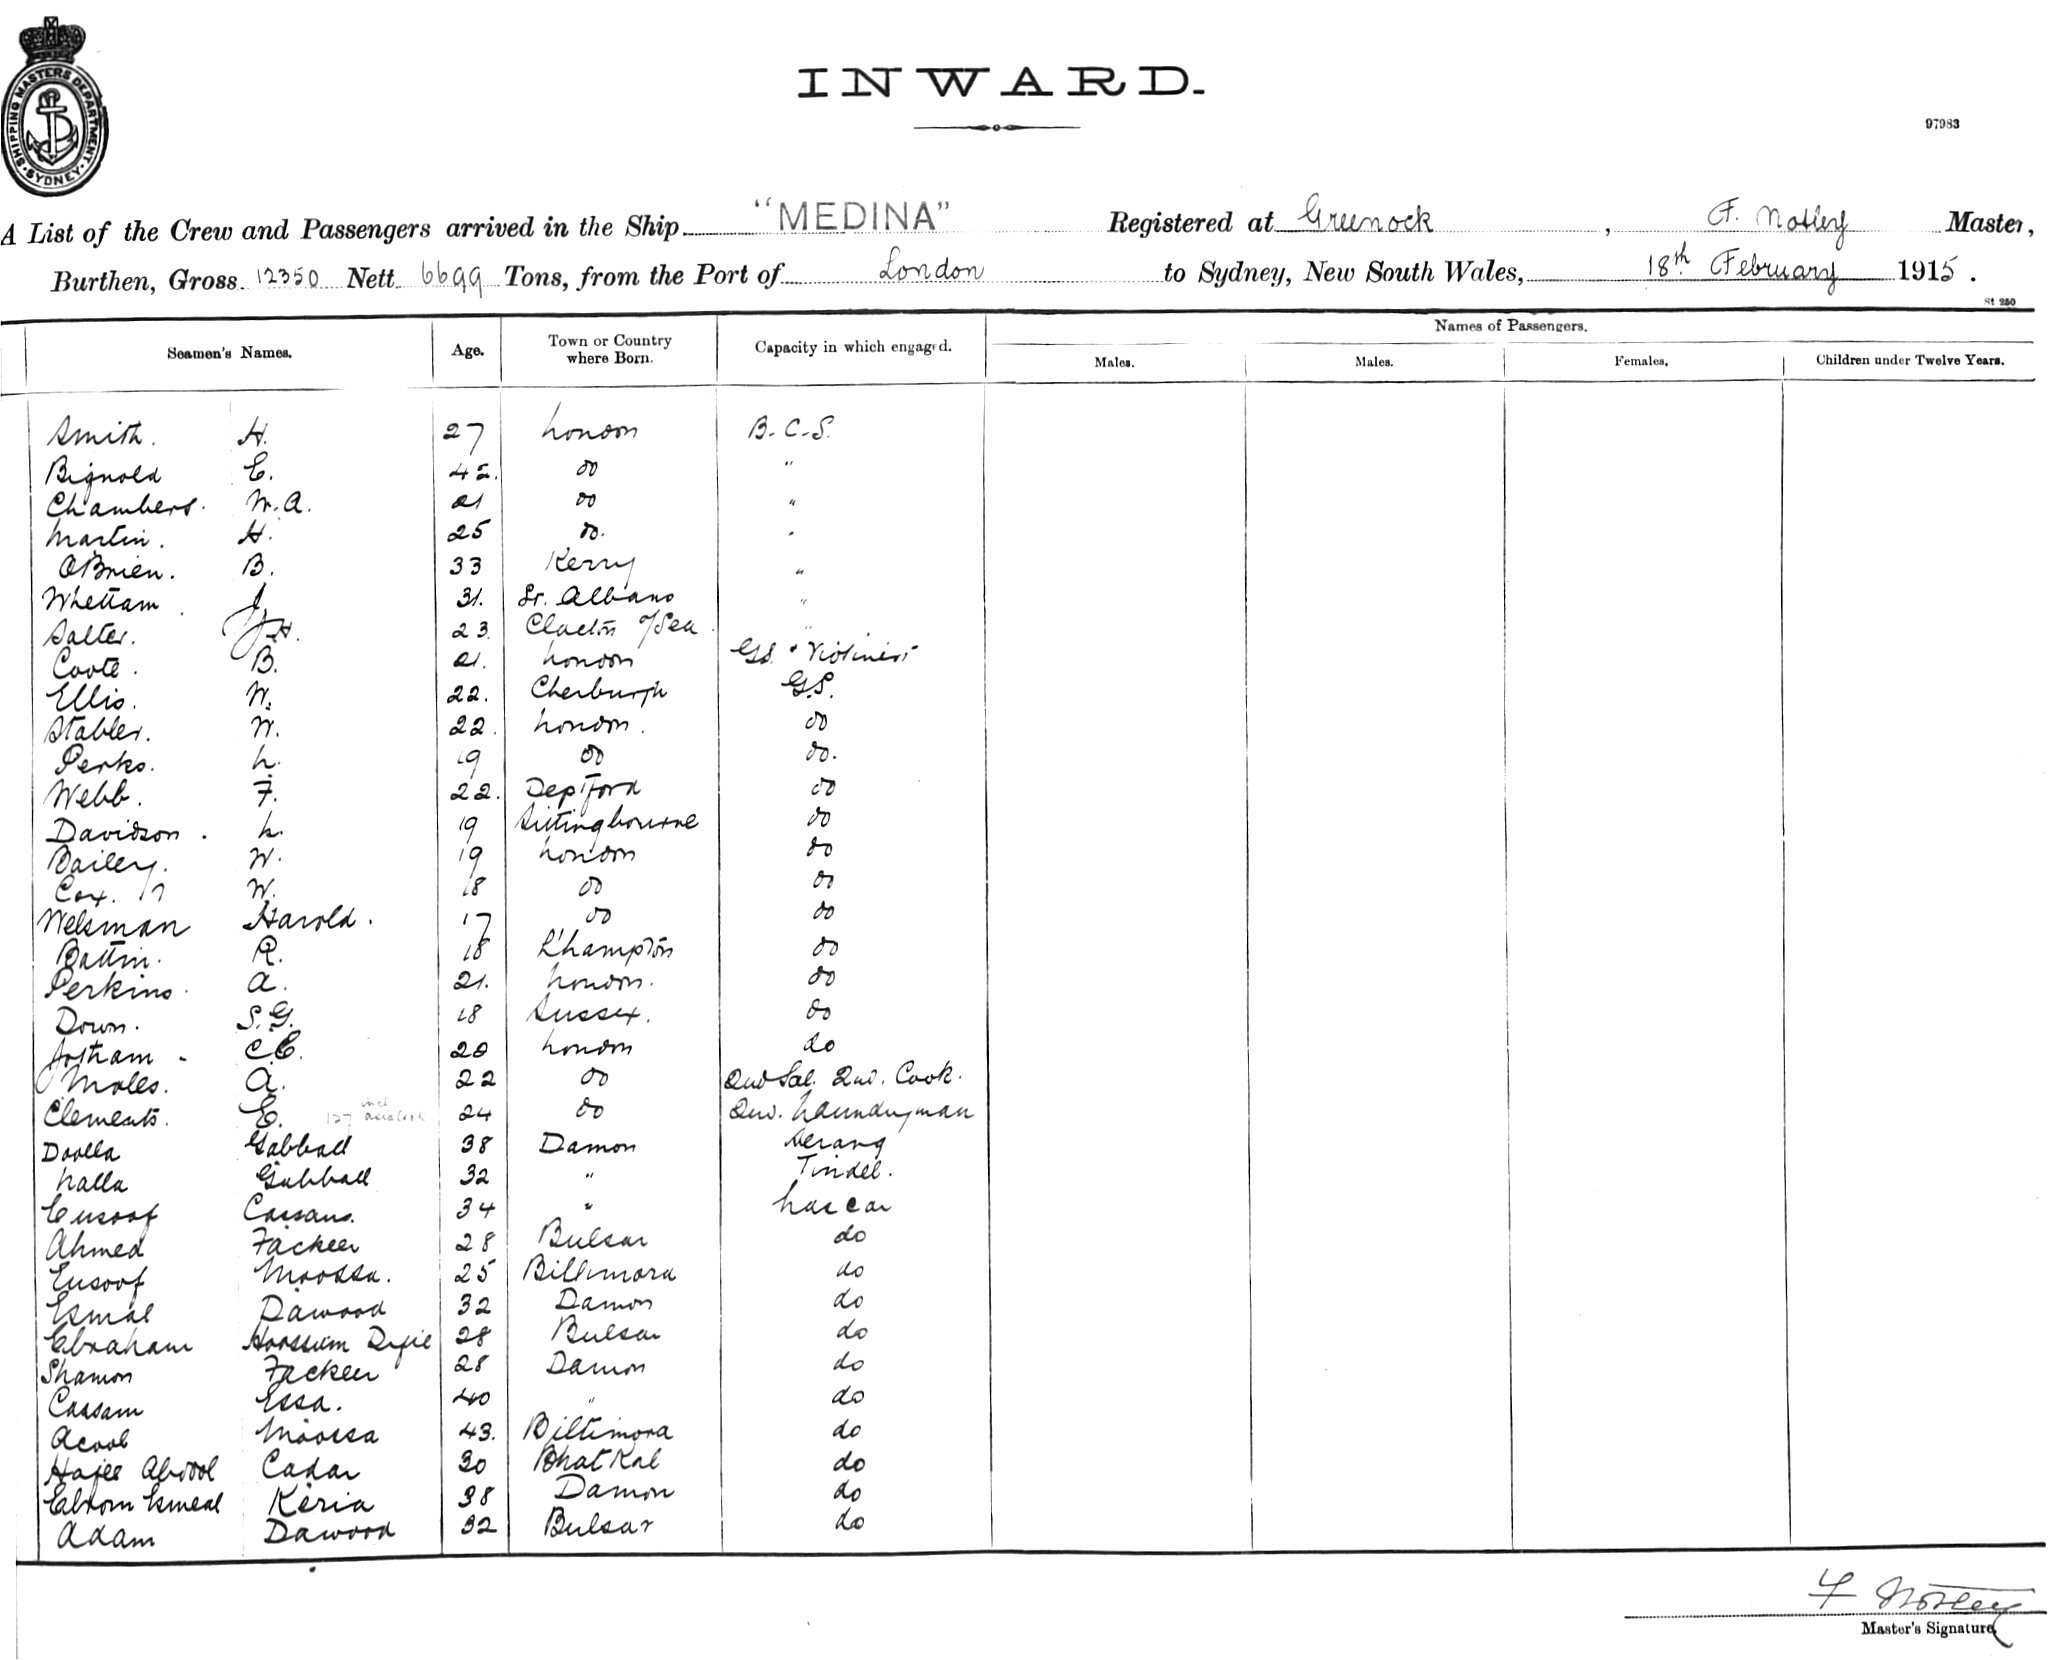 SHIPPING MASTERS DEPARTMENT. SYDNEY
INWARD.
97983
A List of the Crew and Passengers arrived in the Ship "MEDINA" Registered at Greenock, F. Notley Master,
Burthen, Gross 12350 Nett 6699 Tons, from the Port of London to Sydney, New South Wales, 18th February 1915.
St 250
Seamen's Names. Age. Town or Country where Born. Capacity in which engaged. Names of Passengers.
Males. Males. Females. Children under Twelve Years.
Smith. H. 27 London B.C.S.
Bignold E. 42. do "
Chambers. W.A. 21 do "
Martin. H. 25 do. "
O'Brien. B. 33 Kerry "
Whettam J. 31. St. Albans "
Salter. H. 23. Clacton o/Sea "
Coote. B. 21. London G.S. & Violinist
Ellis. W. 22. Cherburgh G.S.
Stabler. W. 22. London. do
Perks. L. 19 do do.
Webb. F. 22. Deptford do
Davidson. L. 19 Sittingbourne do
Bailey. W. 19 London do
Cox. W. 18 do do
Welsman Harold. 17 do do
Battin. R. 18 S'hampton do
Perkins. A. 21. London. do
Down. S.G. 18 Sussex. do
Jotham - C.E. 20 London do
Moles. A. 22 do 2nd Sal. 2nd. Cook.
Clements. E. 24 do 2nd. Laundryman
Doolla Gabball 38 Damon Serang
Nalla Gabball 32 " Tindel.
Eusoof Cassam. 34 " Lascar
Ahmed Fackeer 28 Bulsar do
Eusoof Moossa. 25 Billimora do
Esmal Dawood 32 Damon do
Ebraham Hoossum 28 Bulsar do
Shamon Fackeer 28 Damon do
Cassam Essa. 40 " do
Acoob Moossa 43. Biltimora do
Hajee Abdool Cadar 30 Bhatkal do
Ebrom Esmeal Keria 38 Damon do
Adam Dawood 32 Bulsar do
F Notley
Master's Signature